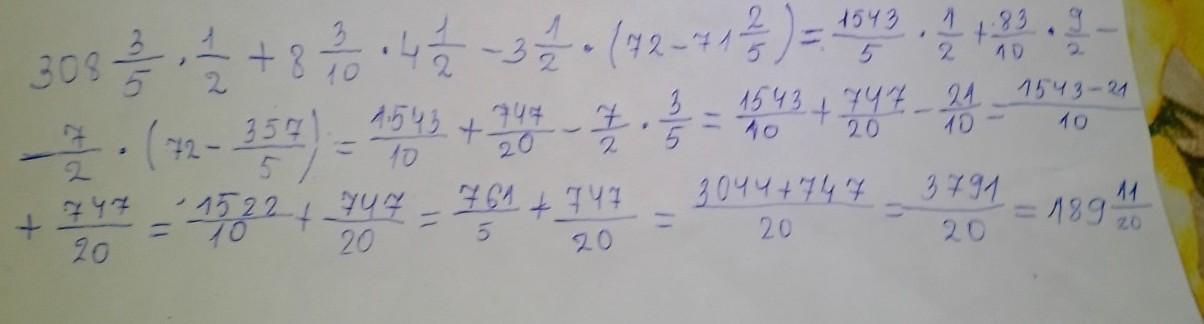 308 3/5 · 1/2 + 8 3/10 · 4 1/2 - 3 1/2 · (72 - 71 2/5) = 1543/5 · 1/2 + 83/10 · 9/2 -
- 7/2 · (72 - 357/5) = 1543/10 + 747/20 - 7/2 · 3/5 = 1543/10 + 747/20 - 21/10 = (1543-21)/10
+ 747/20 = 1522/10 + 747/20 = 761/5 + 747/20 = (3044+747)/20 = 3791/20 = 189 11/20